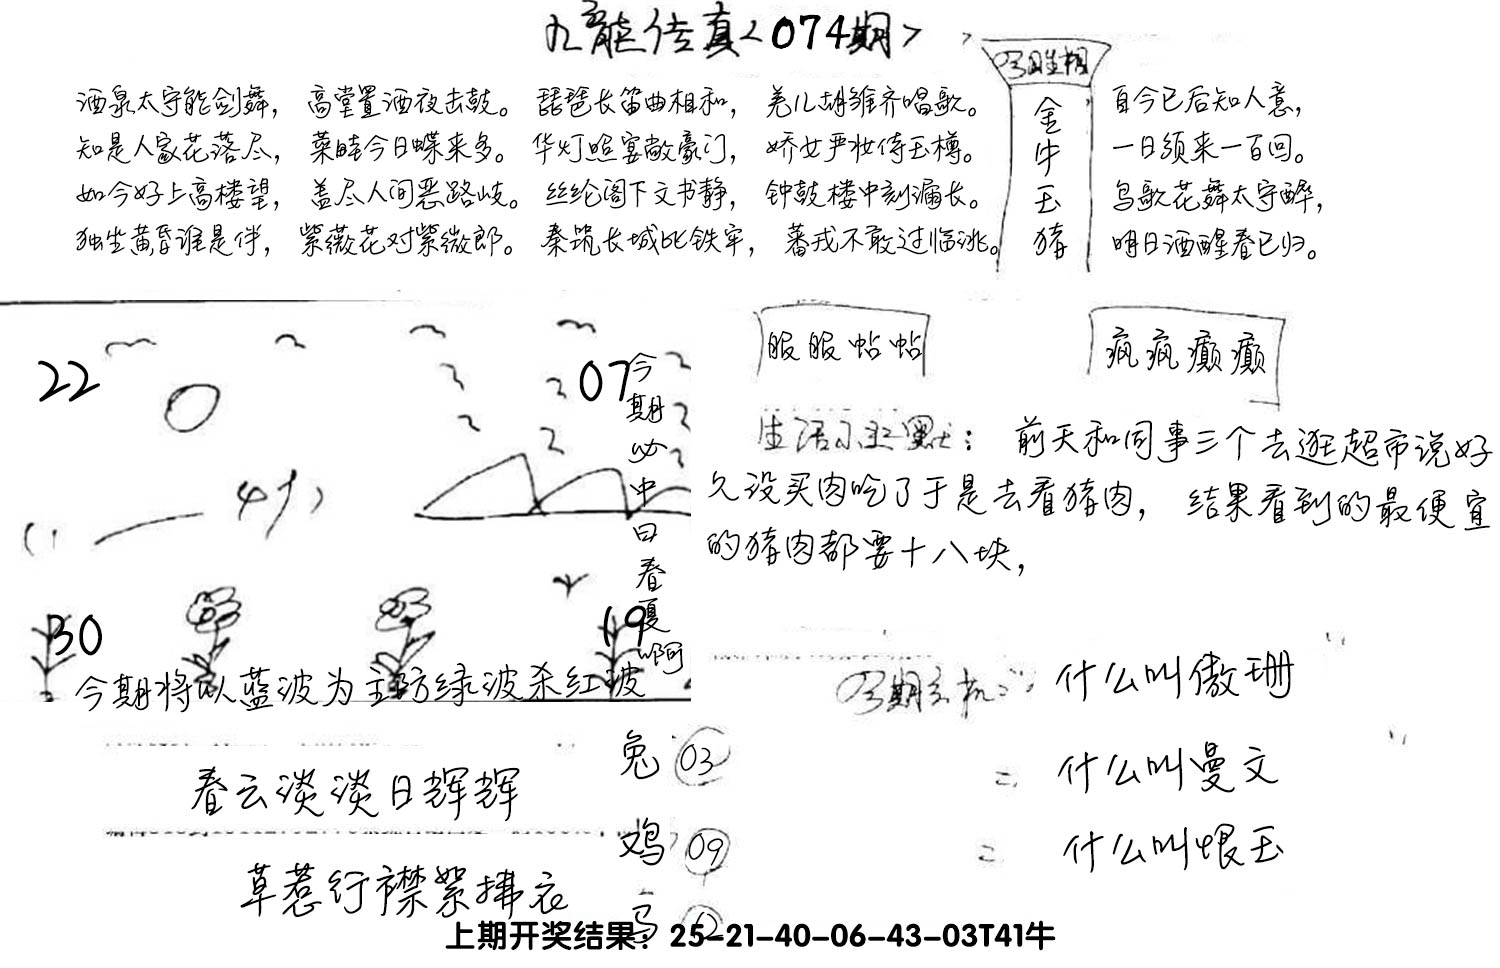 九龙传真<074期>
酒泉太守能剑舞，高堂置酒夜击鼓。琵琶长笛曲相和，羌儿胡雏齐唱歌。
自今已后知人意，
知是人家花落尽，菜畦今日蝶来多。华灯照宴敞豪门，娇女严妆侍玉樽。
一日须来一百回。
如今好上高楼望，盖尽人间恶路岐。丝纶阁下文书静，钟鼓楼中刻漏长。
鸟歌花舞太守醉，
独坐黄昏谁是伴，紫薇花对紫微郎。秦筑长城比铁牢，蕃戎不敢过临洮。
明日酒醒春已归。
金牛玉猪
22
07
今期必中曰春夏啊
30
19
今期将以蓝波为主防绿波杀红波
服服帖帖
疯疯癫癫
生活小幽默：前天和同事三个去逛超市说好
久没买肉吃了于是去看猪肉，结果看到的最便宜
的猪肉都要十八块，
什么叫傲珊
什么叫曼文
什么叫恨玉
春云淡淡日辉辉
草惹行襟絮拂衣
兔 03
鸡 09
上期开奖结果：25-21-40-06-43-03T41牛